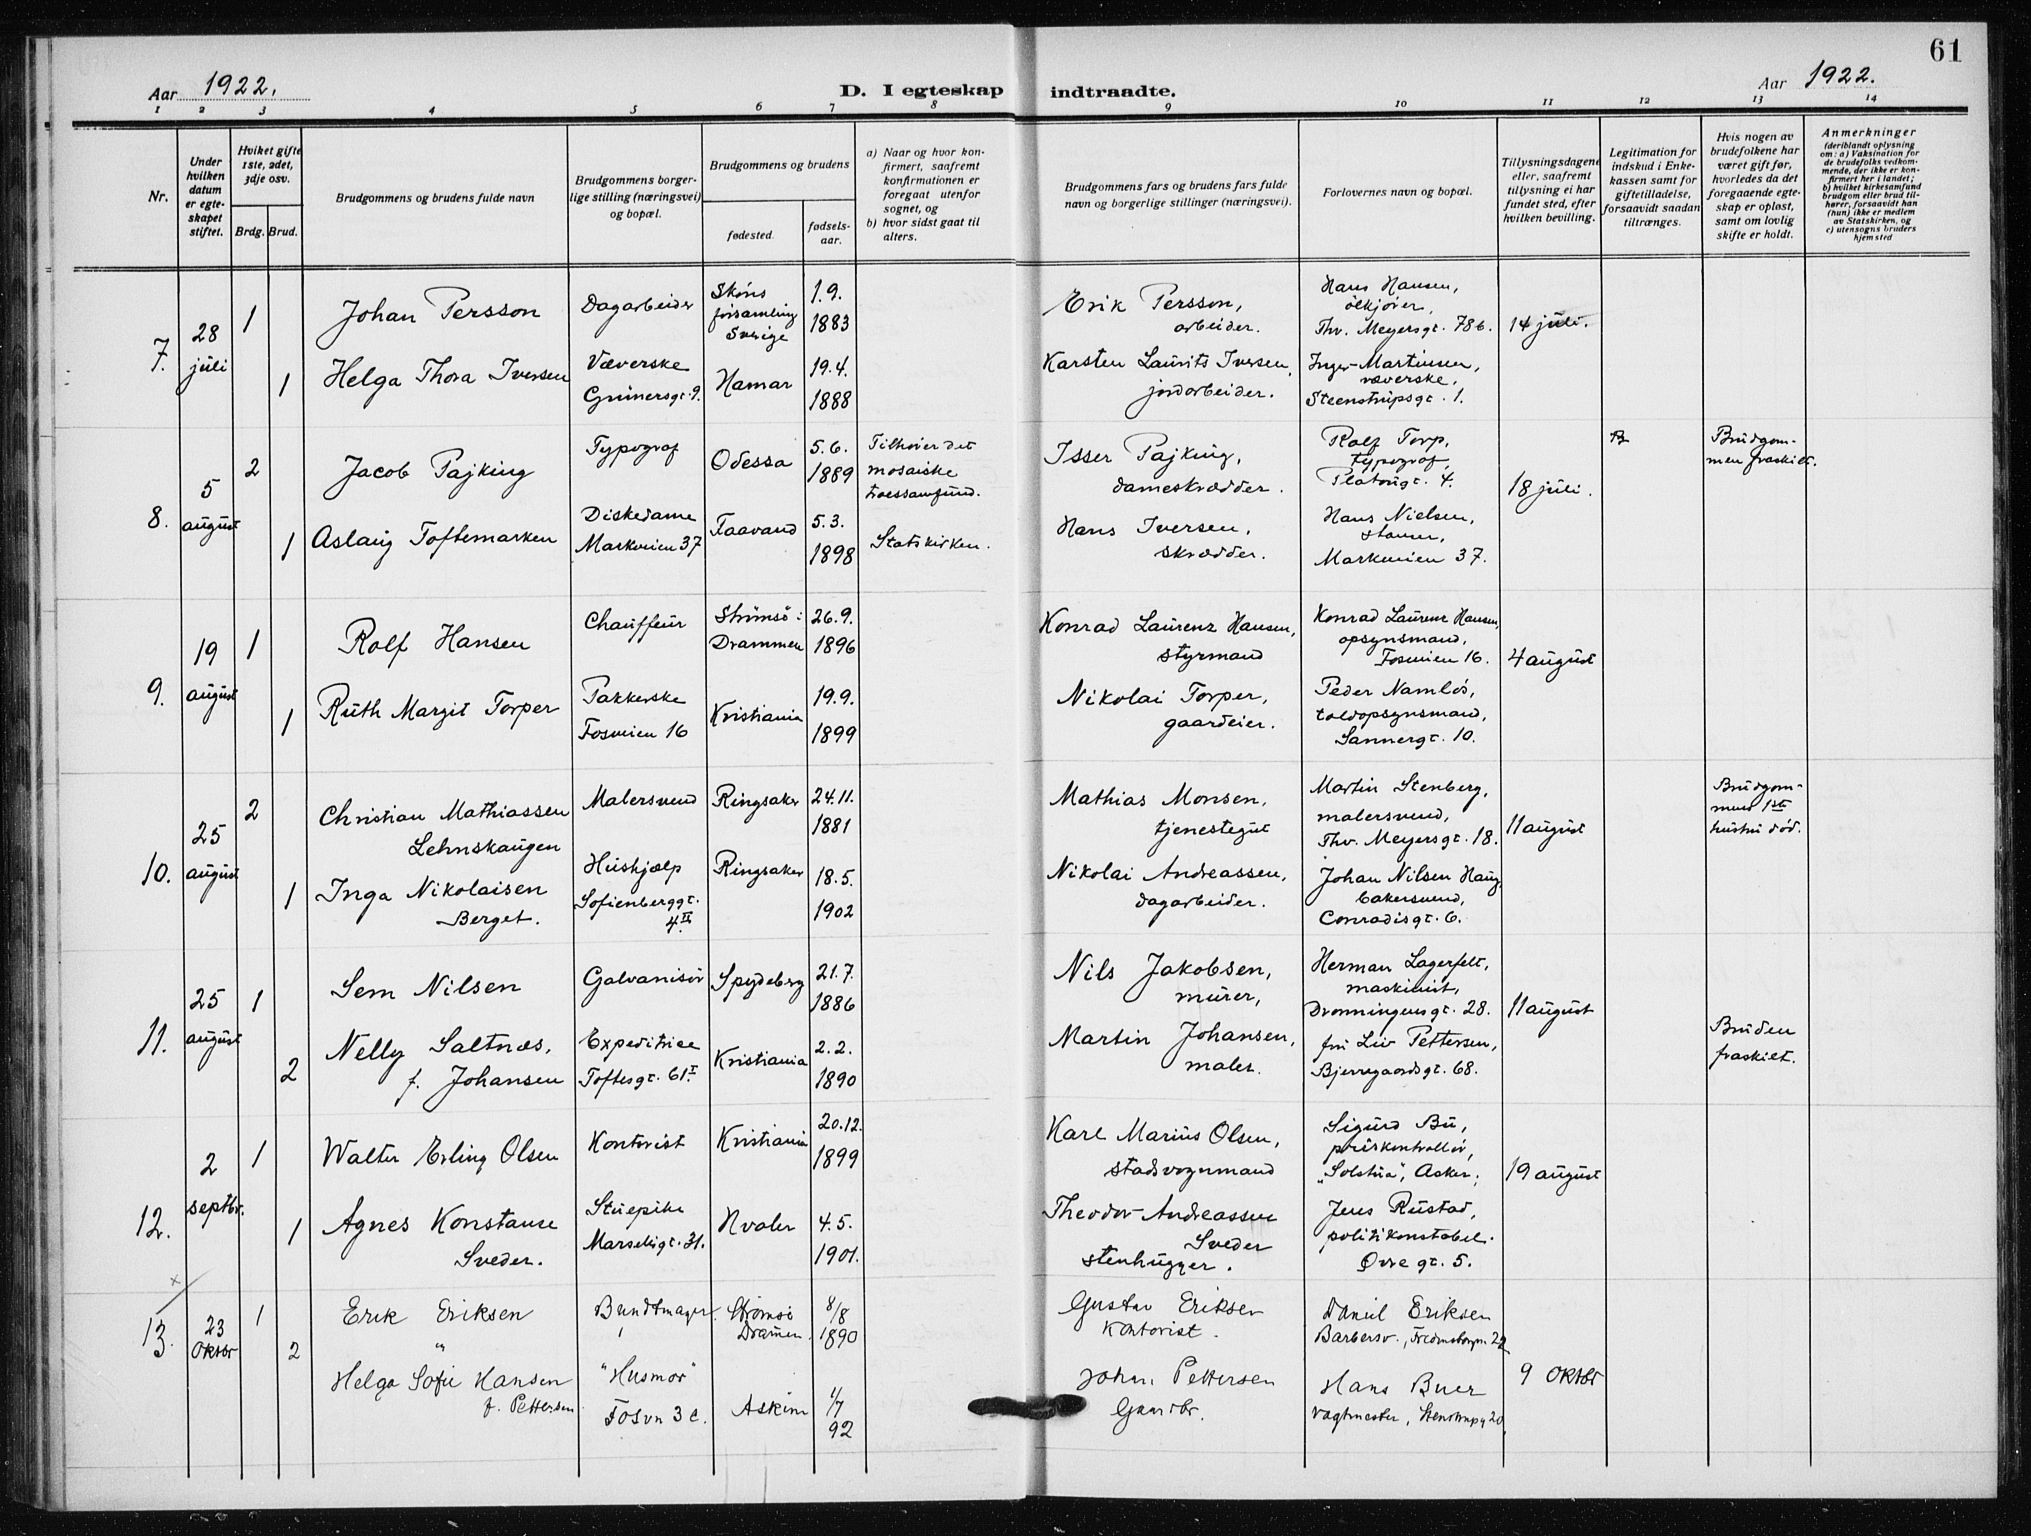 61
Aar 1922.
D. I egteskap indtraadte.
Aar 1922.
1 2 3 4 5 6 7 8 9 10 11 12 13 14
Nr.
Under hvilken datum er egteskapet stiftet.
Hviket gifte 1ste, 2det, 3dje osv.
Brdg. Brud.
Brudgommens og brudens fulde navn
Brudgommens borgerlige stilling (næringsvei) og bopæl.
Brudgommens og brudens
fødested.
fødselsaar.
a) Naar og hvor konfirmert, saafremt konfirmationen er foregaat utenfor sognet, og
b) hvor sidst gaat til alters.
Brudgommens fars og brudens fars fulde navn og borgerlige stillinger (næringsvei).
Forlovernes navn og bopæl.
Tillysningsdagene eller, saafremt tillysning ei har fundet sted, efter hvilken bevilling.
Legitimation for indskud i Enkekassen samt for giftetilladelse, forsaavidt saadan tiltrænges.
Hvis nogen av brudefolkene har været gift før, hvorledes da det foregaaende egteskap er opløst, samt om lovlig skifte er holdt.
Anmerkninger
(deriblandt oplysning om: a) Vaksination for de brudefolks vedkommende, der ikke er konfirmert her i landet; b) hvilket kirkesamfund brudgom eller brud tilhører, forsaavidt han (hun) ikke er medlem av Statskirken, og c) utensogns bruders hjemsted
7.
28 juli
1
Johan Persson
Dagarbeider
Sköns församling Sverige
1.9. 1883
Erik Persson, arbeider.
Hans Hansen, ölkjører, Thv. Meyersgt. 78b.
14 juli.
1
Helga Thora Iversen
Væverske Grünersgt. 9.
Hamar
19.4. 1888
Karsten Laurits Iversen, jordarbeider.
Inger Martinsen, væverske, Steenstrupsgt. 1.
8.
5 august
2
Jacob Pajking
Typograf
Odessa
5.6. 1889
Tilhører det mosaiske troessamfund.
Isser Pajking, dameskrædder.
Rolf Torp, typograf, Platousgt. 4.
18 juli.
B
Brudgommen fraskilt.
1
Aslaug Toftemarken
Diskedame Markveien 37
Faavand
5.3. 1898
Statskirken.
Hans Iversen, skrædder.
Hans Nielsen, Markveien 37.
9.
19 august
1
Rolf Hansen
Chauffeur
Strømsø i Drammen
26.9. 1896
Konrad Laurenz Hansen, styrmand
Konrad Laurenz Hansen, opsynsmand, Fosveien 16.
4 august
1
Ruth Margit Torper
Pakkerske Fosveien 16
Kristiania
19.9. 1899
Nikolai Torper, gaardeier.
Peder Namløs, toldopsynsmand, Sannergt. 10.
10.
25 august
2
Christian Mathiassen Lehnskaugen
Malersvend
Ringsaker
24.11. 1881
Mathias Monsen, tjenestegut
Martin Stenberg, malersvend, Thv. Meyersgt. 18.
11 august
Brudgommens 1ste hustru død.
1
Inga Nikolaisen Berget.
Hushjælp Sofienberggt. 4 II
Ringsaker
18.5. 1902
Nikolai Andreassen, dagarbeider.
Johan Nilsen Haug, bakersvend, Conradisgt. 6.
11.
25 august
1
Sem Nilsen
Galvanisør
Spydeberg
21.7. 1886
Nils Jakobsen, murer,
Herman Lagerfelt, maskinist, Dronningensgt. 28.
11 august
2
Nelly Saltnæs, f. Johansen
Expeditrice Toftesgt. 61 I
Kristiania
2.2. 1890
Martin Johansen, maler.
fru Liv Pettersen, Bjerregaardsgt. 68.
Bruden fraskilt.
12.
2 septbr.
1
Walter Erling Olsen
Kontorist
Kristiania
20.12. 1899
Karl Marius Olsen, stadsvognmand
Sigurd Bu, priskontrollør, "Solstua", Asker,
19 august
1
Agnes Konstanse Sveder.
Stuepike Marselisgt. 31.
Hvaler
4.5. 1901.
Theodor Andreassen Sveder stenhugger.
Jens Rustad, politikonstabel. Øvre gt. 5.
x
13.
23 Oktbr
1
Erik Eriksen
Bundtmager
Strømsø Drammen.
8/8 1890
Gustav Eriksen Kontorist.
Daniel Eriksen Barbersv.,
9 Oktbr
2
"
Helga Sofie Hansen f. Pettersen
"Husmor" Fosvn 3 c.
Askim
1/7 92
Johan Pettersen Gaardbr.
Hans Buer Vagtmester,